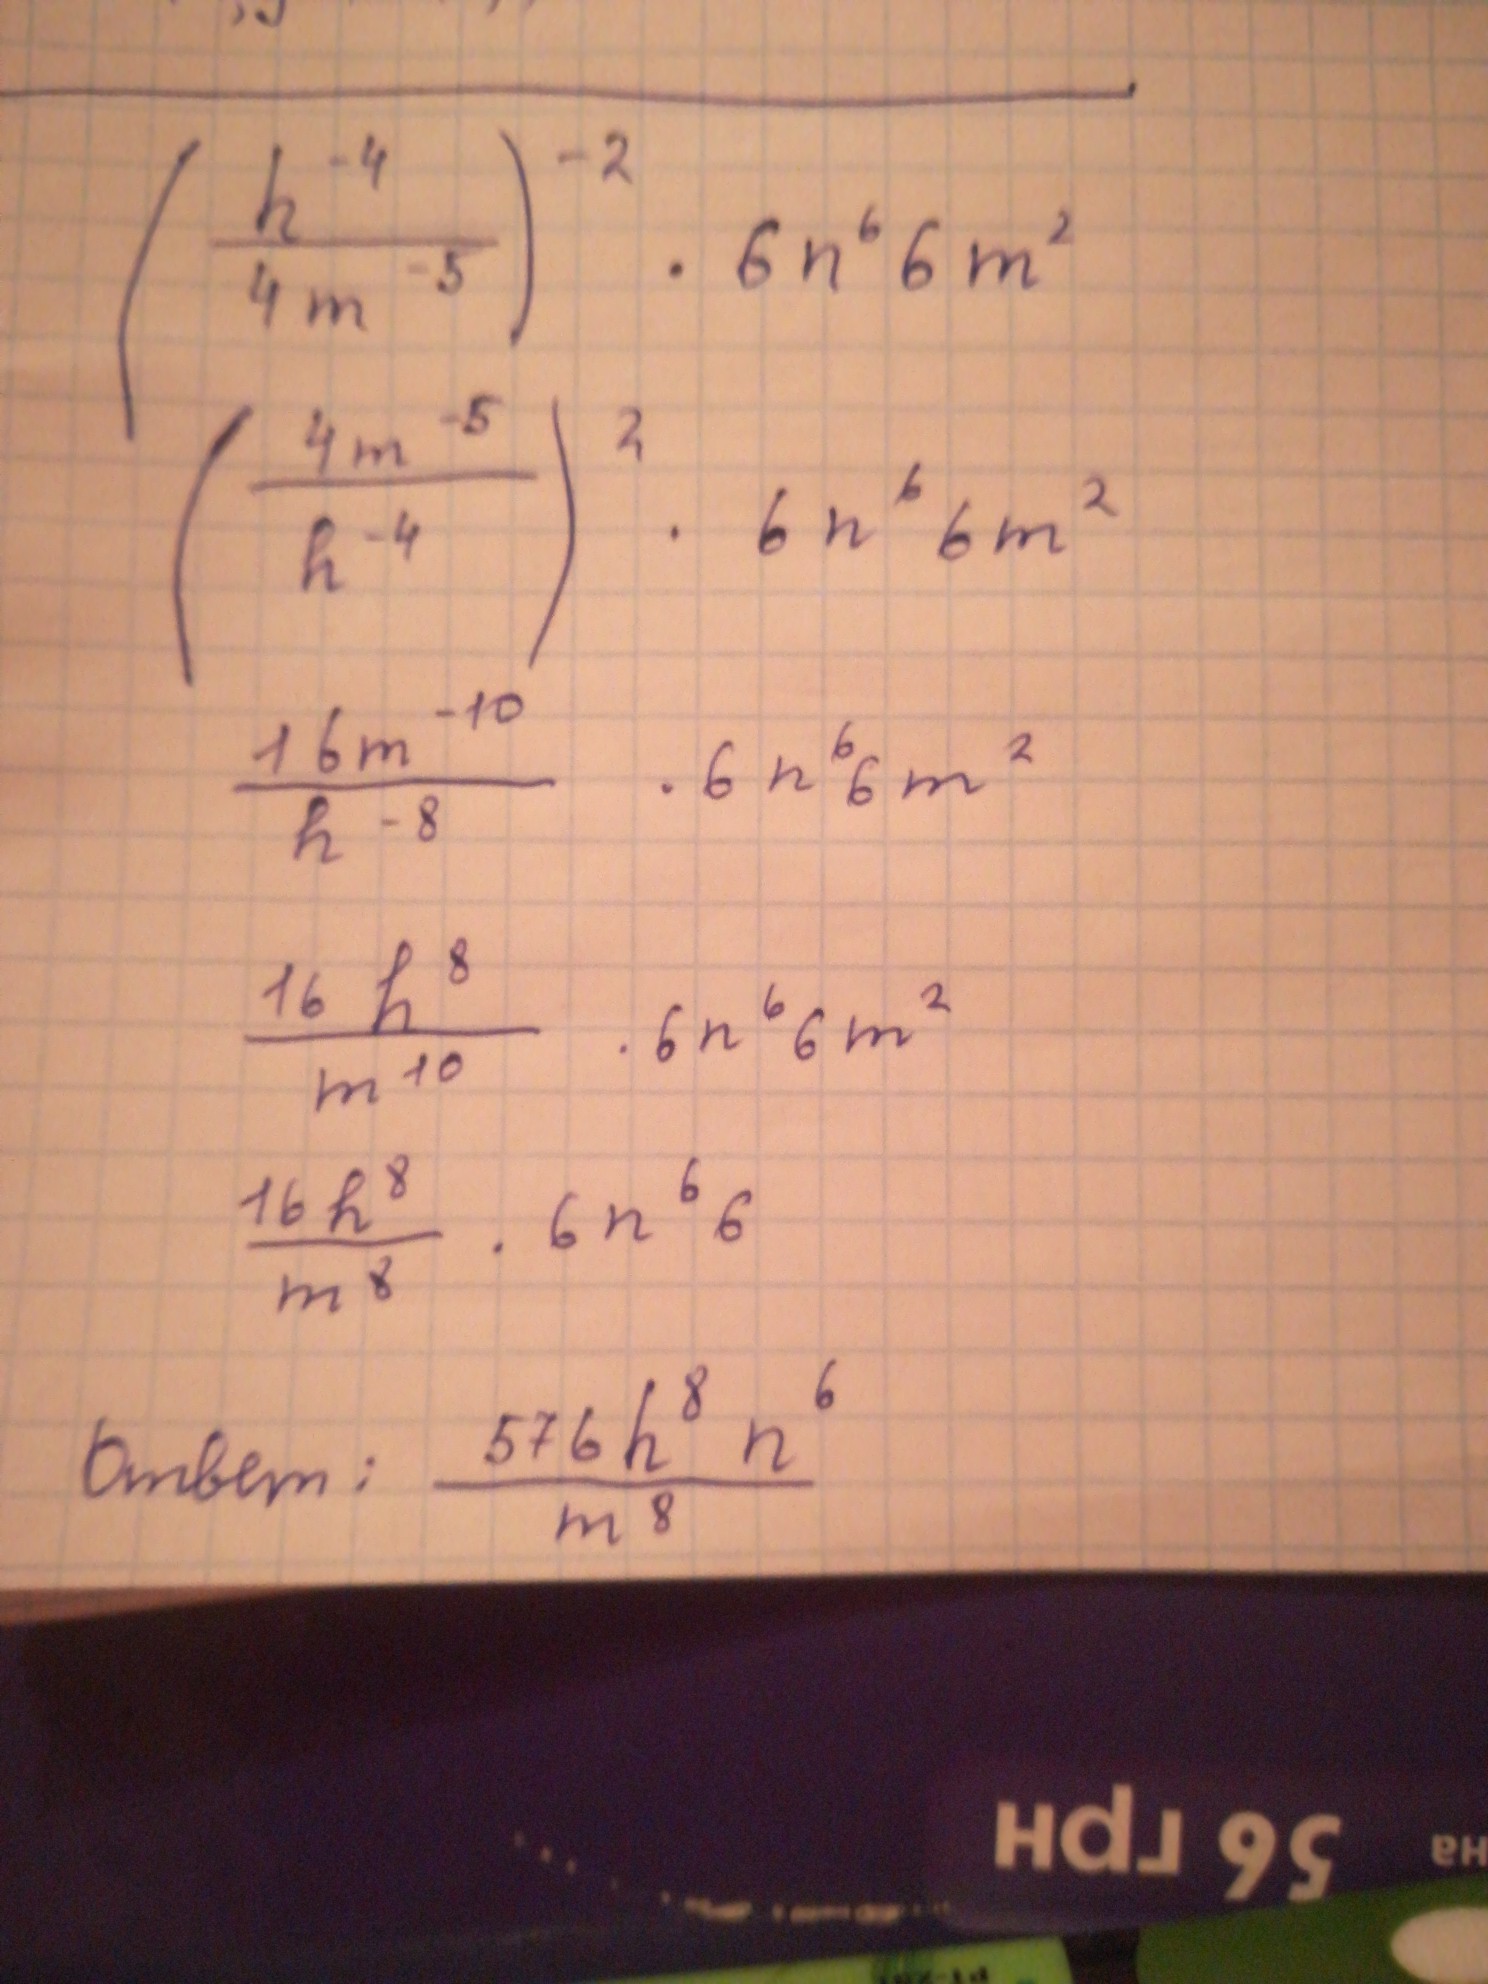 (h^-4 / 4m^-5)^-2 · 6n^6 6m^2
(4m^-5 / h^-4)^2 · 6n^6 6m^2
16m^-10 / h^-8 · 6n^6 6m^2
16 h^8 / m^10 · 6n^6 6m^2
16h^8 / m^8 · 6n^6 6
Ответ: 576h^8 n^6 / m^8
56 грн
на